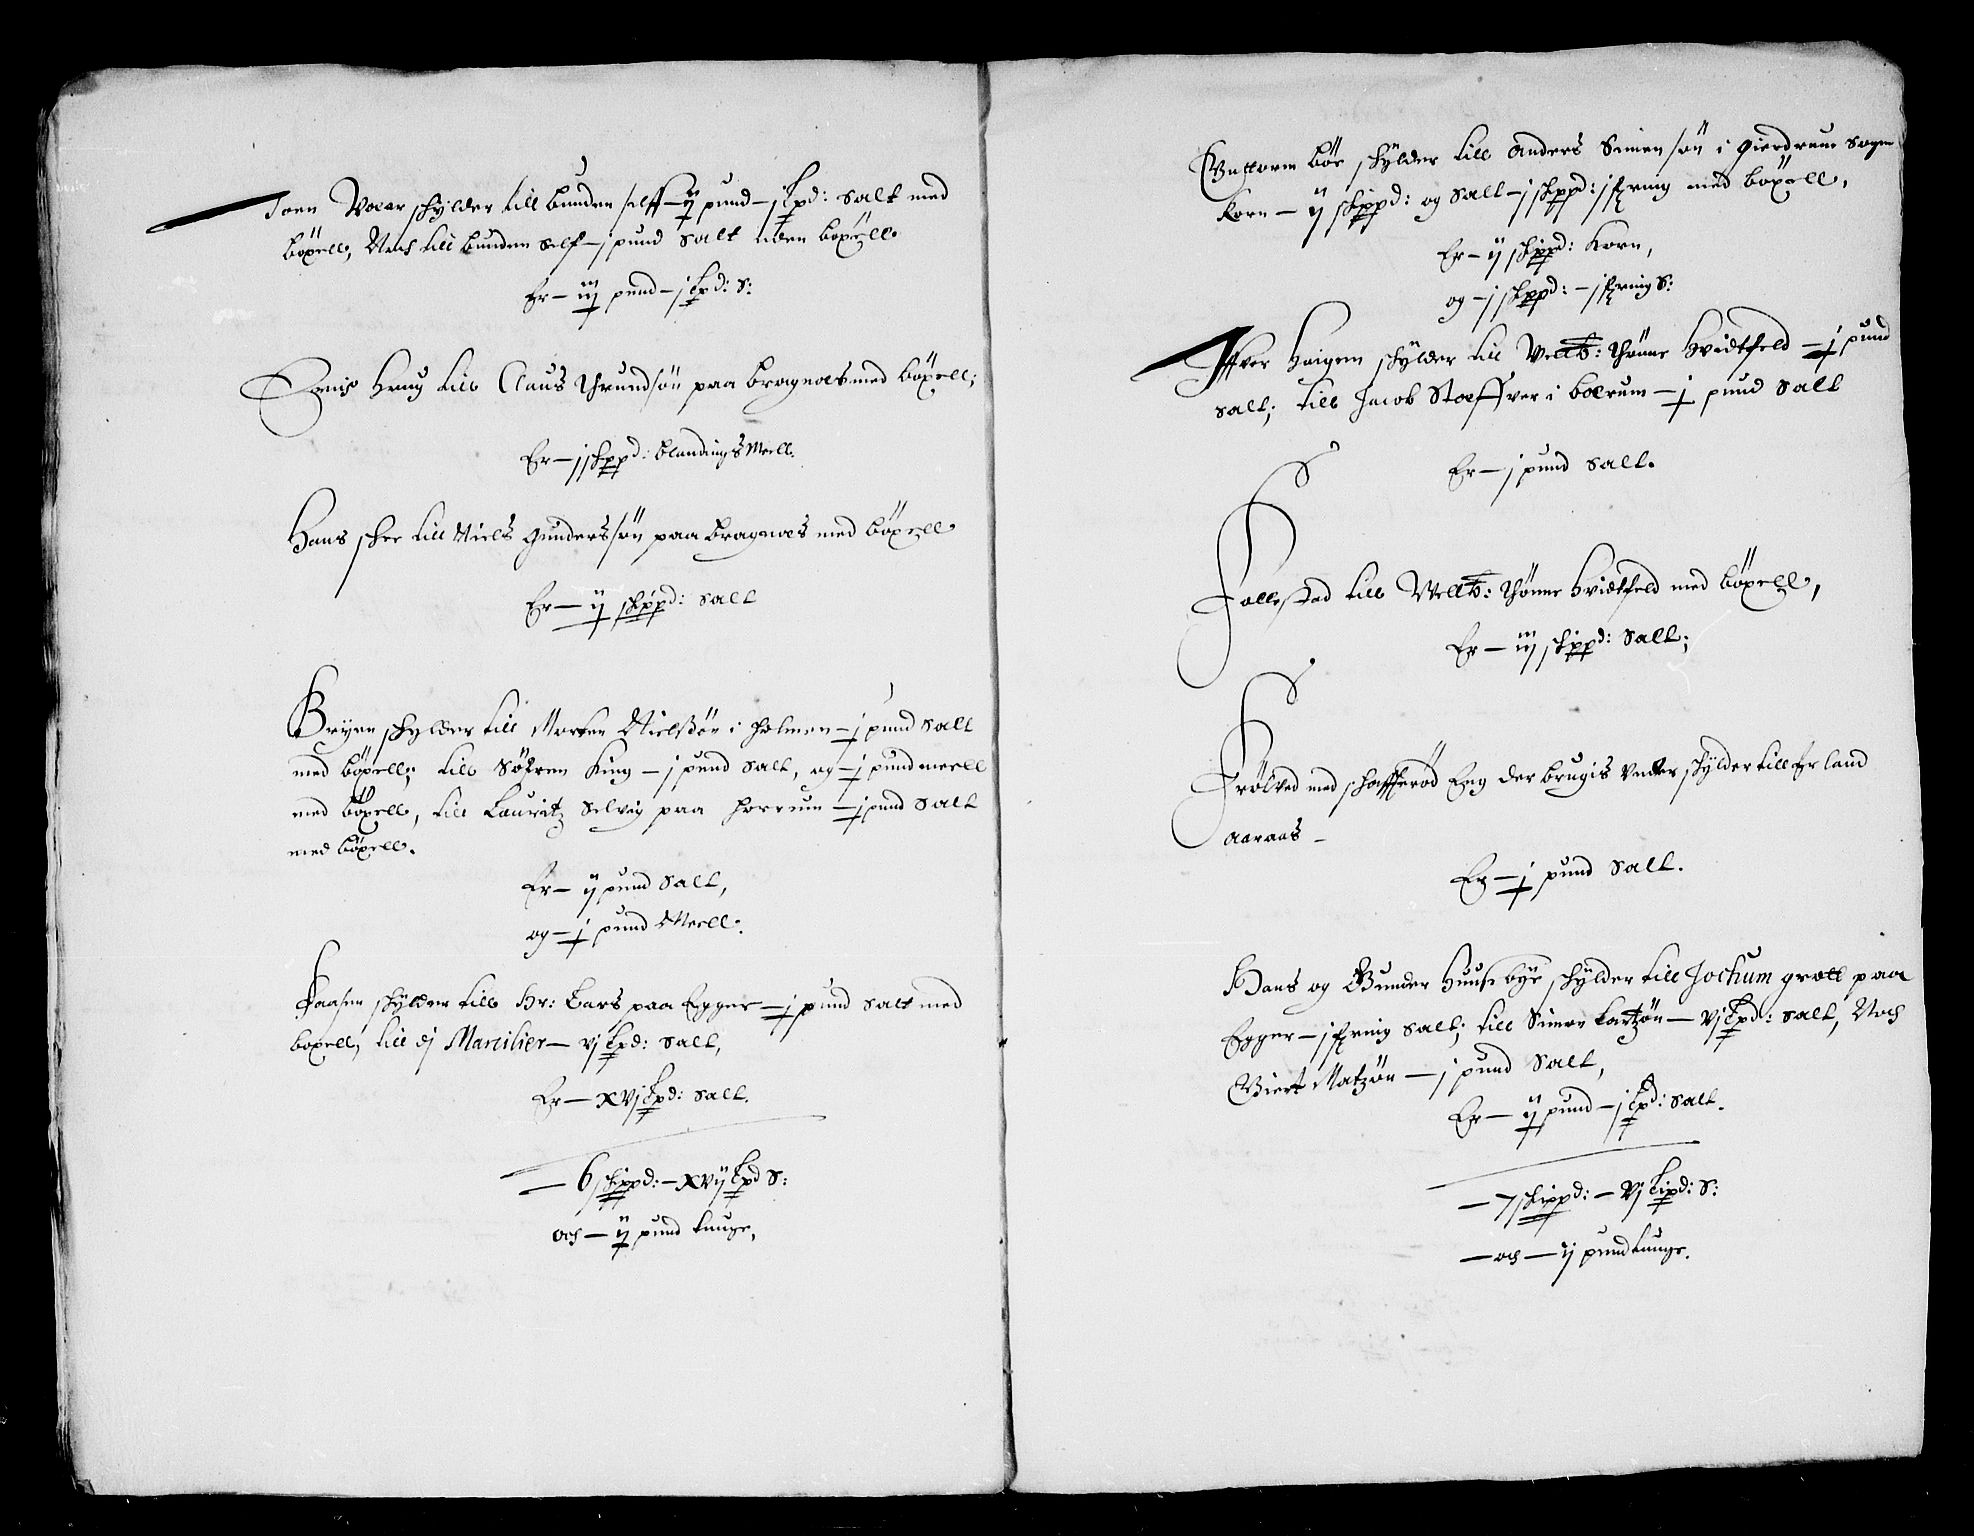 Joen Woear schylder till bunden self – ij pund – j Lpd: Salt med
böxell, Noch till bunden self – j pund Salt uden böxell
Er – iij pund – j Lpd: S:
Hrug till Claus Thrundsön paa Bragnæs med böxell;
Er – j schppd: blandings Meell.
Hans schee till Niels Gunderssön paa Bragnæs med böxell
Er – ij schppd: Salt
Bryen schylder till Morten Nielsön i Holmen – j pund Salt
med böxell; till Söfren King – j pund Salt, og – j pund meell
med böxell, till Lauritz Selvig paa Horrum – j pund Salt
med böxell.
Er – ij pund Salt,
og – j pund Meell.
Faasen schylder till Hr: Lars paa Egger – j pund Salt med
boxell, till dj Marcilier – vj Lpd: Salt,
Er – xvj Lpd: Salt.
– 6 schppd: – xvij Lpd S:
och – ij pund tunge,
Guttorm böe schylder till Anders Simensön i Gierdrum Sogn
Korn – ij schippd: og Salt – j schppd: j fring med boxell,
Er – ij schippd: Korn,
og – j schppd: – j fring S:
Iffver Haigem schylder till Welb: Thönne Hvidtfeld – j pund
Salt; till Jacob Stoeffver i Bærum – j pund Salt
Er – j pund Salt.
Follestad till Welb: Thönne Hvidtfeld med böxell,
Er – iij schippd: Salt;
Frölved med schafferöd Eng der brugis under schylder till Erland
Aaraas –
Er – j pund Salt.
Hans og Gunder Huusebye schylder till Jochum groll paa
Egger – j fring Salt; till Simen Lartzön – vj Lpd: Salt, Noch
Biert Matzön – j pund Salt,
Er – ij pund – j Lpd: Salt.
– 7 schippd: – vj Lispd: S:
– och – ij pund tunge.